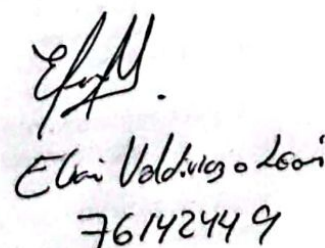 Elvi Valdiviezo León
76142449